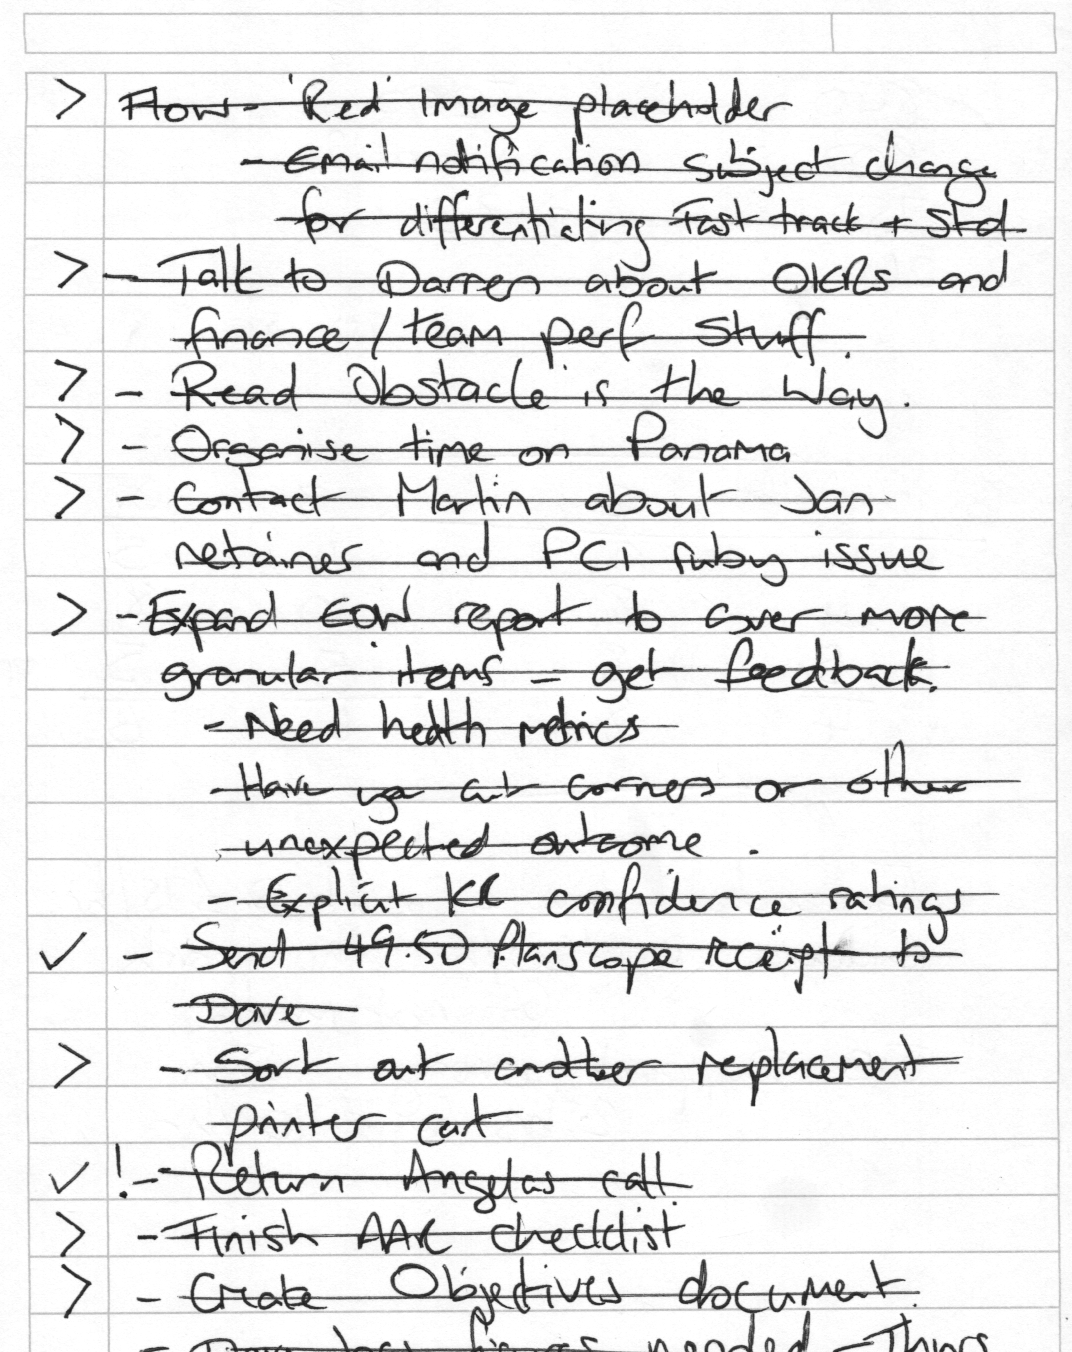 > Flow - 'Red' Image placeholder
- Email notification subject change
for differentiating Fast track + Std
> - Talk to Darren about OKRs and
finance / team perf stuff.
> - Read Obstacle is the Way.
> - Organise time on Panama
> - Contact Martin about Jan
retainer and PCI ruby issue
> - Expand EOW report to cover more
granular items - get feedback.
- Need health metrics
- Have we cut corners or other
unexpected outcome.
- Explicit KR confidence ratings
✓ - Send 49.50 Planscope receipt to
Dave
> - Sort out another replacement
printer cart
✓ ! - Return Angelas call.
> - Finish checklist
> - Create Objectives document.
- needed - Things